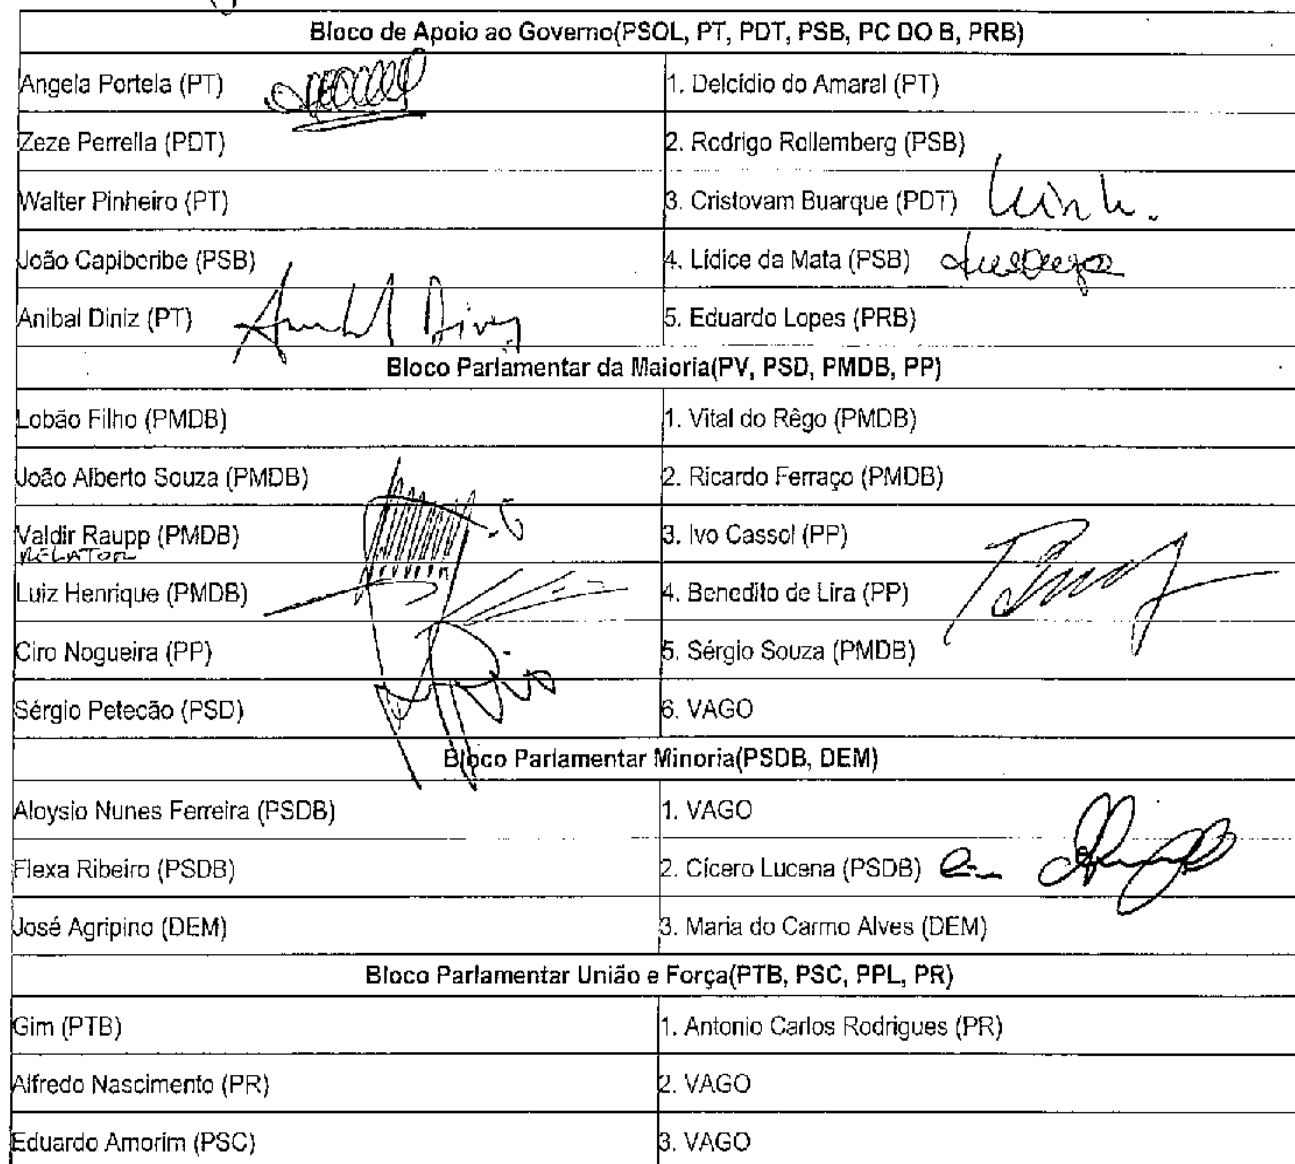 Bloco de Apoio ao Governo(PSOL, PT, PDT, PSB, PC DO B, PRB)
Angela Portela (PT) 1. Delcídio do Amaral (PT)
Zeze Perrella (PDT) 2. Rodrigo Rollemberg (PSB)
Walter Pinheiro (PT) 3. Cristovam Buarque (PDT)
João Capiberibe (PSB) 4. Lídice da Mata (PSB)
Anibal Diniz (PT) Anibal Diniz 5. Eduardo Lopes (PRB)
Bloco Parlamentar da Maioria(PV, PSD, PMDB, PP)
Lobão Filho (PMDB) 1. Vital do Rêgo (PMDB)
João Alberto Souza (PMDB) 2. Ricardo Ferraço (PMDB)
Valdir Raupp (PMDB) 3. Ivo Cassol (PP)
RELATOR
Luiz Henrique (PMDB) 4. Benedito de Lira (PP)
Ciro Nogueira (PP) 5. Sérgio Souza (PMDB)
Sérgio Petecão (PSD) 6. VAGO
Bloco Parlamentar Minoria(PSDB, DEM)
Aloysio Nunes Ferreira (PSDB) 1. VAGO
Flexa Ribeiro (PSDB) 2. Cícero Lucena (PSDB)
José Agripino (DEM) 3. Maria do Carmo Alves (DEM)
Bloco Parlamentar União e Força(PTB, PSC, PPL, PR)
Gim (PTB) 1. Antonio Carlos Rodrigues (PR)
Alfredo Nascimento (PR) 2. VAGO
Eduardo Amorim (PSC) 3. VAGO